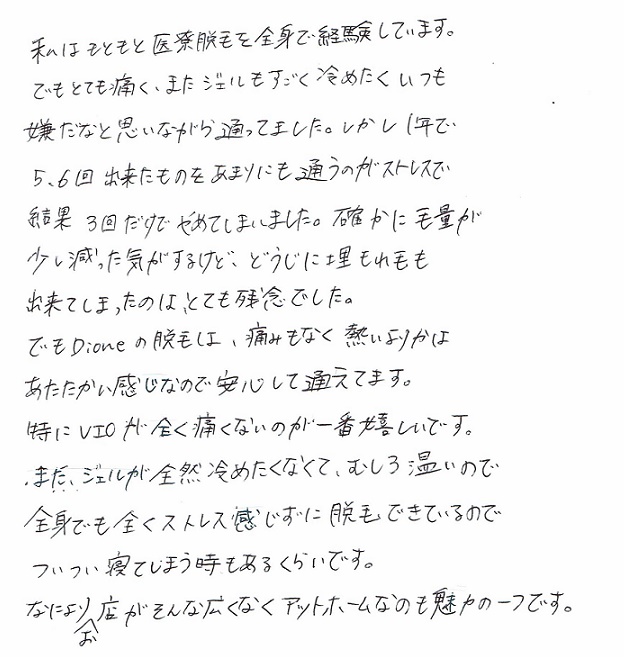 私はもともと医療脱毛を全身で経験しています。
でもとても痛く、またジェルもすごく冷めたくいつも
嫌だなと思いながら通ってました。しかし1年で
5、6回出来たものをあまりにも通うのがストレスで
結果3回だけでやめてしまいました。確かに毛量が
少し減った気がするけど、どうじに埋もれ毛も
出来てしまったのは、とても残念でした。
でもDioneの脱毛は、痛みもなく熱いよりかは
あたたかい感じなので安心して通えてます。
特にVIOが全く痛くないのが一番嬉しいです。
また、ジェルが全然冷めたくなくて、むしろ温いので
全身でも全くストレス感じずに脱毛できているので
ついつい寝てしまう時もあるくらいです。
なによりお店がそんな広くなくアットホームなのも魅力の一つです。